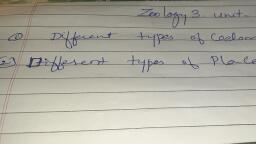 Zoology 3 unit-
(1) Different types of Coelom
(2) Different types of Place